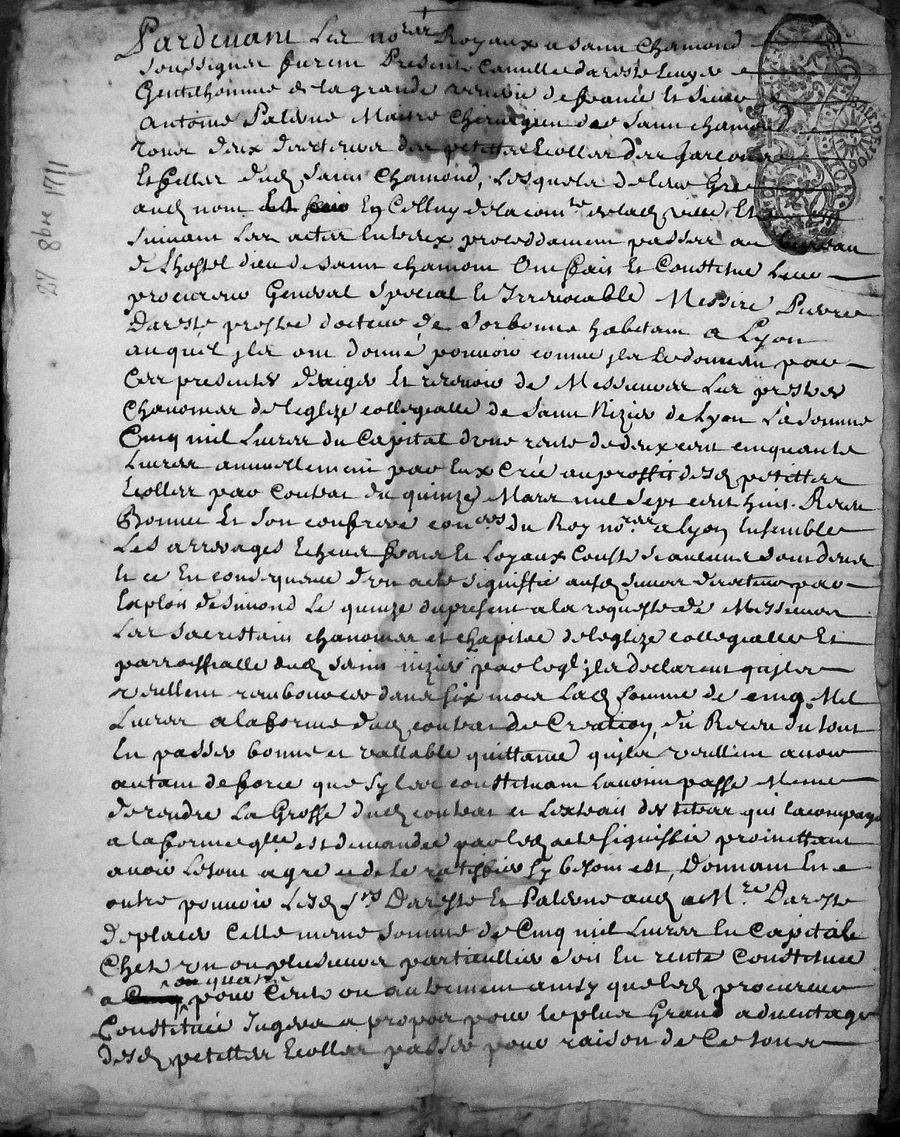 27 8bre 1711
Pardevant Les no.res Royaux a saint Chamond
soussignes furent Presents Camille dareste Ecuyer
Gentilhomme de la grande venerie de france et sieur
Antoine Palerne Maitre Chirurgien de Saint chamond
tous deux directeurs des petittes Ecolles des Garcons
Et filles dud. Saint Chamond, Lesquels de leur Gre
aud. nom Et Celluy de la com.te de lad. ville Et
suivant Les actes Entreux preceddament passes au bureau
de Lhostel dieu de saint chamom Ont fait Et Constitué Leur
procureur General Special Et Irrevocable Messire Pierre
Dareste prestre docteur de Sorbonne habitant a Lyon
auquel jls ont donné pouvoir comme jls Le donnent par
Ces presentes dexiger Et recevoir de Messieurs Les prestres
Chanoines de leglize collegialle de Saint Nizier de Lyon La somme
Cinq mil Livres du Capital d'une rente de deux cent cinquante
Livres annuellement par Eux Creé au proffit desd. petittes
Ecolles par Contrat du quinze Mars mil sept cent huit Receu
Bonnet Et son confrere con.ers du Roy no.res a Lyon Ensemble
Les arrerages Echeus frais Et Loyaux Coust
Et ce En consequence d'un acte signiffié ausd. sieurs directeurs par
Exploit de simond Le quinze du present a la requeste de Messieurs
Les sacristain chanoines et chapitre de leglize collegialle Et
parroissialle dud. saint nizier par leql jls declarent qujls
veullent rembourcer dans six mois Lad. somme de cinq Mil
Livres a la forme dud. contrat de Creation, du Receu du tout
En passer bonne et vallable quittance qujls veullent avoir
autant de force que sy les constituant Lavoint passé Meme
de rendre La Grosse dud. contrat et Lextrait des titres qui lacompagn
a la forme qlle est demandée par led. acte signiffié promettant
avoir Le tout agre et de le ratiffier sy besoin est, Donnant En
outre pouvoir Lesd. srs Dareste Et Palerne aud. Mre Dareste
de placer Cette meme somme de Cinq mil Livres En Capital
Chez un ou plusieurs particulliers soit En rente Constituée
ou quatre
a pour Cent ou autrement ainsy que led. procureur
Constitué Jugera a propos pour le plus Grand adventage
desd. petittes Ecolles passer pour raison de Ce tous